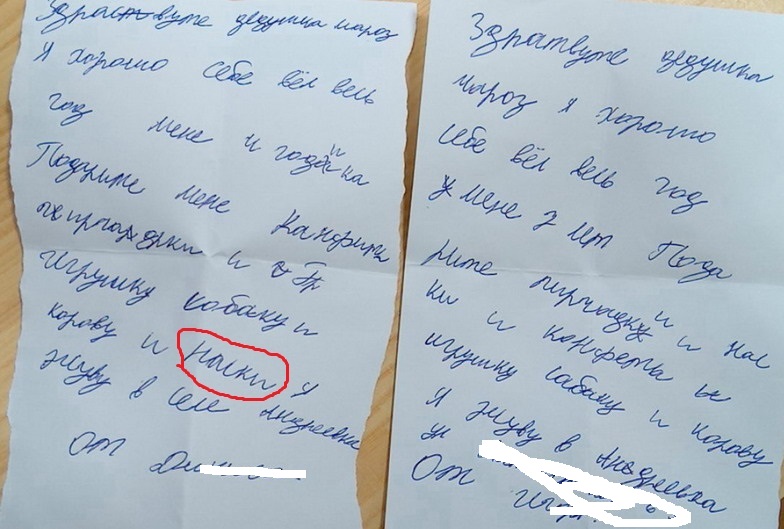 Здраствуте дедушка мароз
Я хорошо себе вёл весь
год мене и годика
Подурите мене Канфиты
пирчадки и
Игрушку собаку и
корову и наски Я
живу в селе Андреевка
От
Здратвуте дедушка
мароз я хорошо
себе вёл весь год
у мене 7 лет Пода
рите пирчадки и Нас
ки и конфеты и
игрушку сабаку и корову
Я живу в Андреевка
ул
От